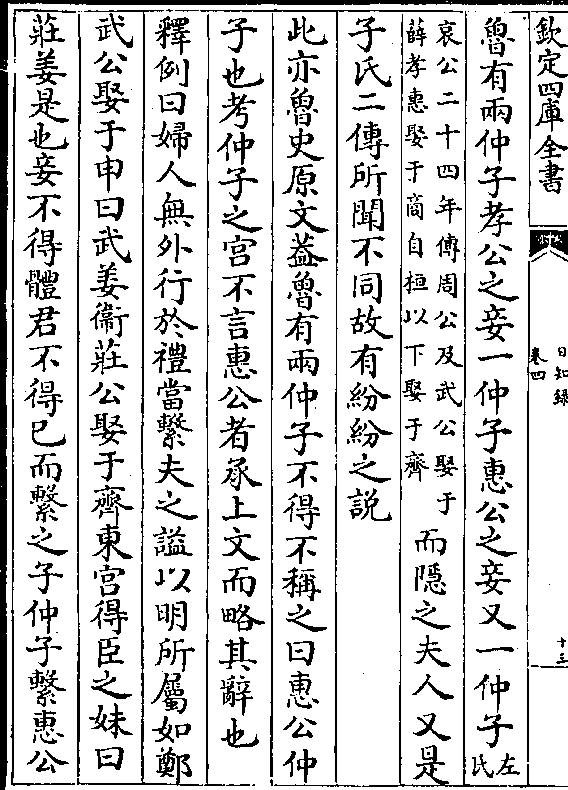 欽定四庫全書
日知錄
卷四
十三
魯有兩仲子孝公之妾一仲子惠公之妾又一仲子左氏
哀公二十四年傳周公及武公娶于
薛孝惠娶于商自桓以下娶于齊
而隱之夫人又是
子氏二傳所聞不同故有紛紛之説
此亦魯史原文葢魯有兩仲子不得不稱之曰惠公仲
子也考仲子之宫不言惠公者承上文而略其辭也
釋例曰婦人無外行於禮當繫夫之諡以明所屬如鄭
武公娶于申曰武姜衞莊公娶于齊東宫得臣之妹曰
莊姜是也妾不得體君不得已而繫之子仲子繫惠公